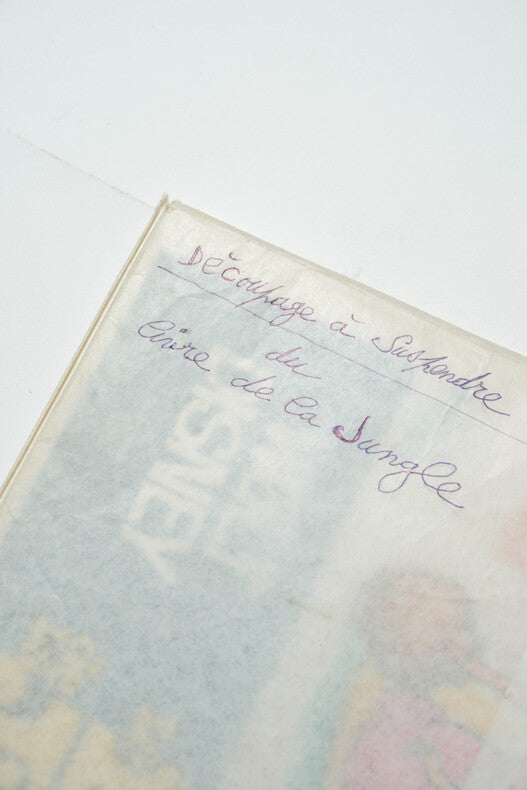 Découpage à Suspendre
du
Livre de la Jungle
DISNEY